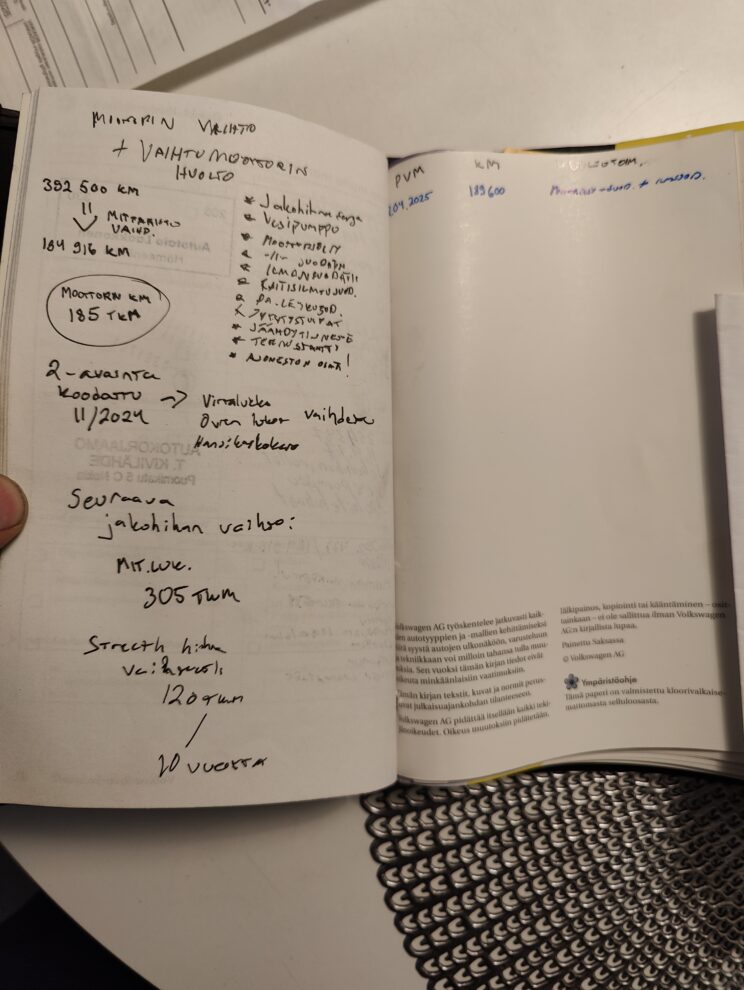 MOOTTORIN VAIHTO
+ VAIHTOMOOTTORIN
HUOLTO
392 500 KM
MITTARISTO
VAIHD.
184 916 KM
MOOTTORIN KM
185 TKM
* Jakohihnan sarja
* Vesipumppu
* MOOTTORIÖLJY
* -//- SUODATIN
* ILMANSUODATIN
* RAITISILMASUOD.
* PA.
* SYTYTYSTULPAT
* JÄÄHDYTINNESTE
* TERMOSTAATTI
* AJONESTON OSAT!
2-avainta
koodattu
11/2024
→ Virtalukko
Oven lukot vaihdettu
Hansikaslokero
Seuraava
jakohihnan vaihto:
MIT.LUK.
305 TKM
Strecth hihna
vaihtoväli
120 TKM
/
10 VUOTTA
PVM
KM
.04.2025
189600
+
Volkswagen AG työskentelee jatkuvasti kaik-
kien autotyyppien ja -mallien kehittämiseksi
tästä syystä autojen ulkonäköön, varusteluun
ja tekniikkaan voi milloin tahansa tulla muu-
toksia. Sen vuoksi tämän kirjan tiedot eivät
oikeuta minkäänlaisiin vaatimuksiin.
Tämän kirjan tekstit, kuvat ja normit perus-
tuvat julkaisuajankohdan tilanteeseen.
Volkswagen AG pidättää itsellään kaikki teki-
jänoikeudet. Oikeus muutoksiin pidätetään.
Jälkipainos, kopiointi tai kääntäminen – osit-
tainkaan – ei ole sallittua ilman Volkswagen
AG:n kirjallista lupaa.
Painettu Saksassa
© Volkswagen AG
Ympäristöohje
Tämä paperi on valmistettu kloorivalkaise-
mattomasta selluloosasta.